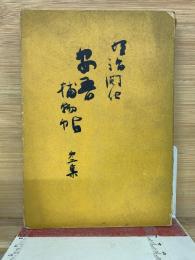 明治開化
安吾
捕物帖
第一集